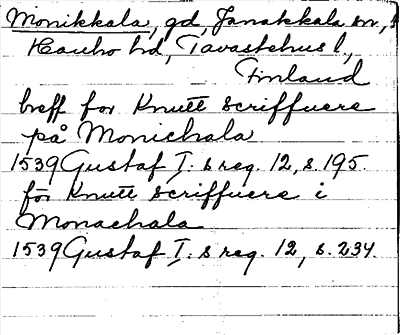 Monikkala, gd, Janakkala sn,
Hauho hd, Tavastehus l,
Finland
breff for Knutt scriffuere
på Monichala
1539 Gustaf I. s reg. 12, s. 195.
för Knutt scriffuere i
Monachala
1539 Gustaf I. s reg. 12, s. 234.